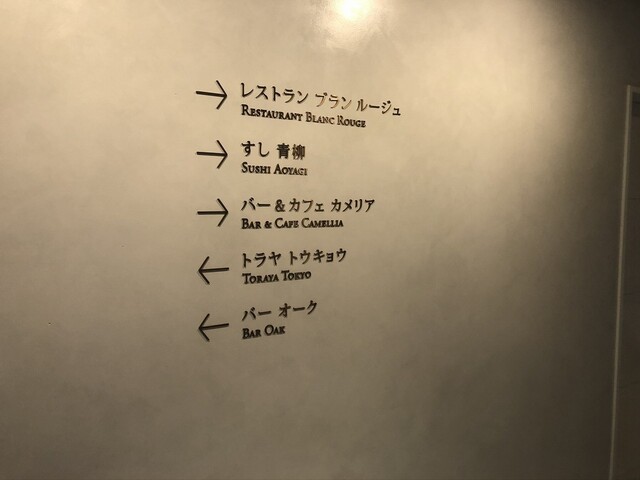 → レストラン ブラン ルージュ
RESTAURANT BLANC ROUGE
→ すし 青柳
SUSHI AOYAGI
→ バー & カフェ カメリア
BAR & CAFE CAMELLIA
← トラヤ トウキョウ
TORAYA TOKYO
← バー オーク
BAR OAK